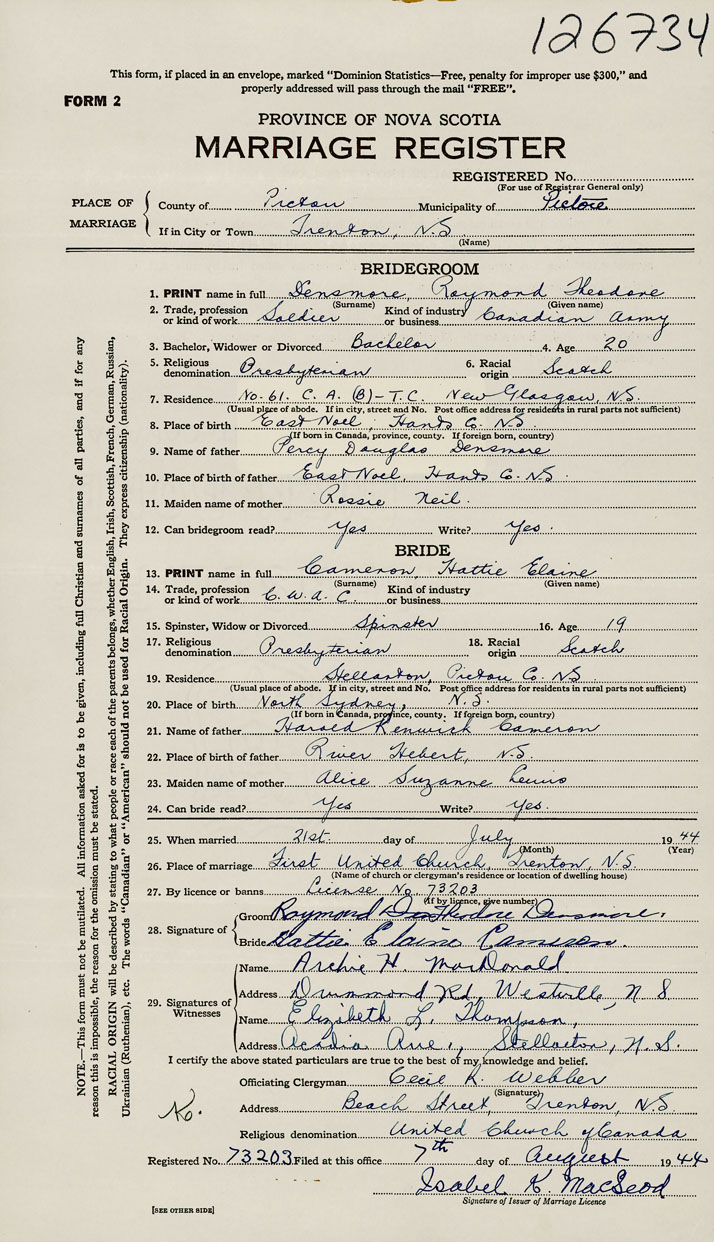 126734
This form, if placed in an envelope, marked "Dominion Statistics—Free, penalty for improper use $300," and
properly addressed will pass through the mail "FREE".
FORM 2
PROVINCE OF NOVA SCOTIA
MARRIAGE REGISTER
REGISTERED No.
(For use of Registrar General only)
PLACE OF MARRIAGE
County of Pictou Municipality of Pictou
If in City or Town Trenton, N.S.
(Name)
BRIDEGROOM
1. PRINT name in full Densmore, Raymond Theodore
(Surname) (Given name)
2. Trade, profession or kind of work Soldier Kind of industry or business Canadian Army
3. Bachelor, Widower or Divorced Bachelor 4. Age 20
5. Religious denomination Presbyterian 6. Racial origin Scotch
7. Residence No. 61. C. A. (B)-T.C. New Glasgow, N.S.
(Usual place of abode. If in city, street and No. Post office address for residents in rural parts not sufficient)
8. Place of birth East Noel, Hants Co. N.S.
(If born in Canada, province, county. If foreign born, country)
9. Name of father Percy Douglas Densmore
10. Place of birth of father East Noel, Hants Co. N.S.
11. Maiden name of mother Rossie Neil.
12. Can bridegroom read? Yes Write? Yes.
BRIDE
13. PRINT name in full Cameron, Hattie Elaine
(Surname) (Given name)
14. Trade, profession or kind of work C.W.A.C. Kind of industry or business
15. Spinster, Widow or Divorced Spinster 16. Age 19
17. Religious denomination Presbyterian 18. Racial origin Scotch
19. Residence Stellarton, Pictou Co. N.S.
(Usual place of abode. If in city, street and No. Post office address for residents in rural parts not sufficient)
20. Place of birth North Sydney, N.S.
(If born in Canada, province, county. If foreign born, country)
21. Name of father Harold Renwick Cameron
22. Place of birth of father River Hebert, N.S.
23. Maiden name of mother Alice Suzanne Lewis
24. Can bride read? Yes Write? Yes.
25. When married 21st. day of July 1944
(Month) (Year)
26. Place of marriage First United Church, Trenton, N.S.
(Name of church or clergyman's residence or location of dwelling house)
27. By licence or banns License No. 73203
(If by licence, give number)
28. Signature of
Groom Raymond Theodore Densmore.
Bride Hattie Elaine Cameron.
29. Signatures of Witnesses
Name Archie H MacDonald
Address Drummond Rd, Westville, N S
Name Elizabeth L. Thompson,
Address Acadia Ave., Stellarton, N.S.
I certify the above stated particulars are true to the best of my knowledge and belief.
Officiating Clergyman Cecil K. Webber
(Signature)
No.
Address Beach Street, Trenton, N.S.
Religious denomination United Church of Canada
Registered No. 73203 Filed at this office 7th day of August 1944
Isabel K. MacLeod
Signature of Issuer of Marriage Licence
[SEE OTHER SIDE]
NOTE.—This form must not be mutilated. All information asked for is to be given, including full Christian and surnames of all parties, and if for any
reason this is impossible, the reason for the omission must be stated.
RACIAL ORIGIN will be described by stating to what people or race each of the parents belongs, whether English, Irish, Scottish, French, German, Russian,
Ukrainian (Ruthenian), etc. The words "Canadian" or "American" should not be used for Racial Origin. They express citizenship (nationality).